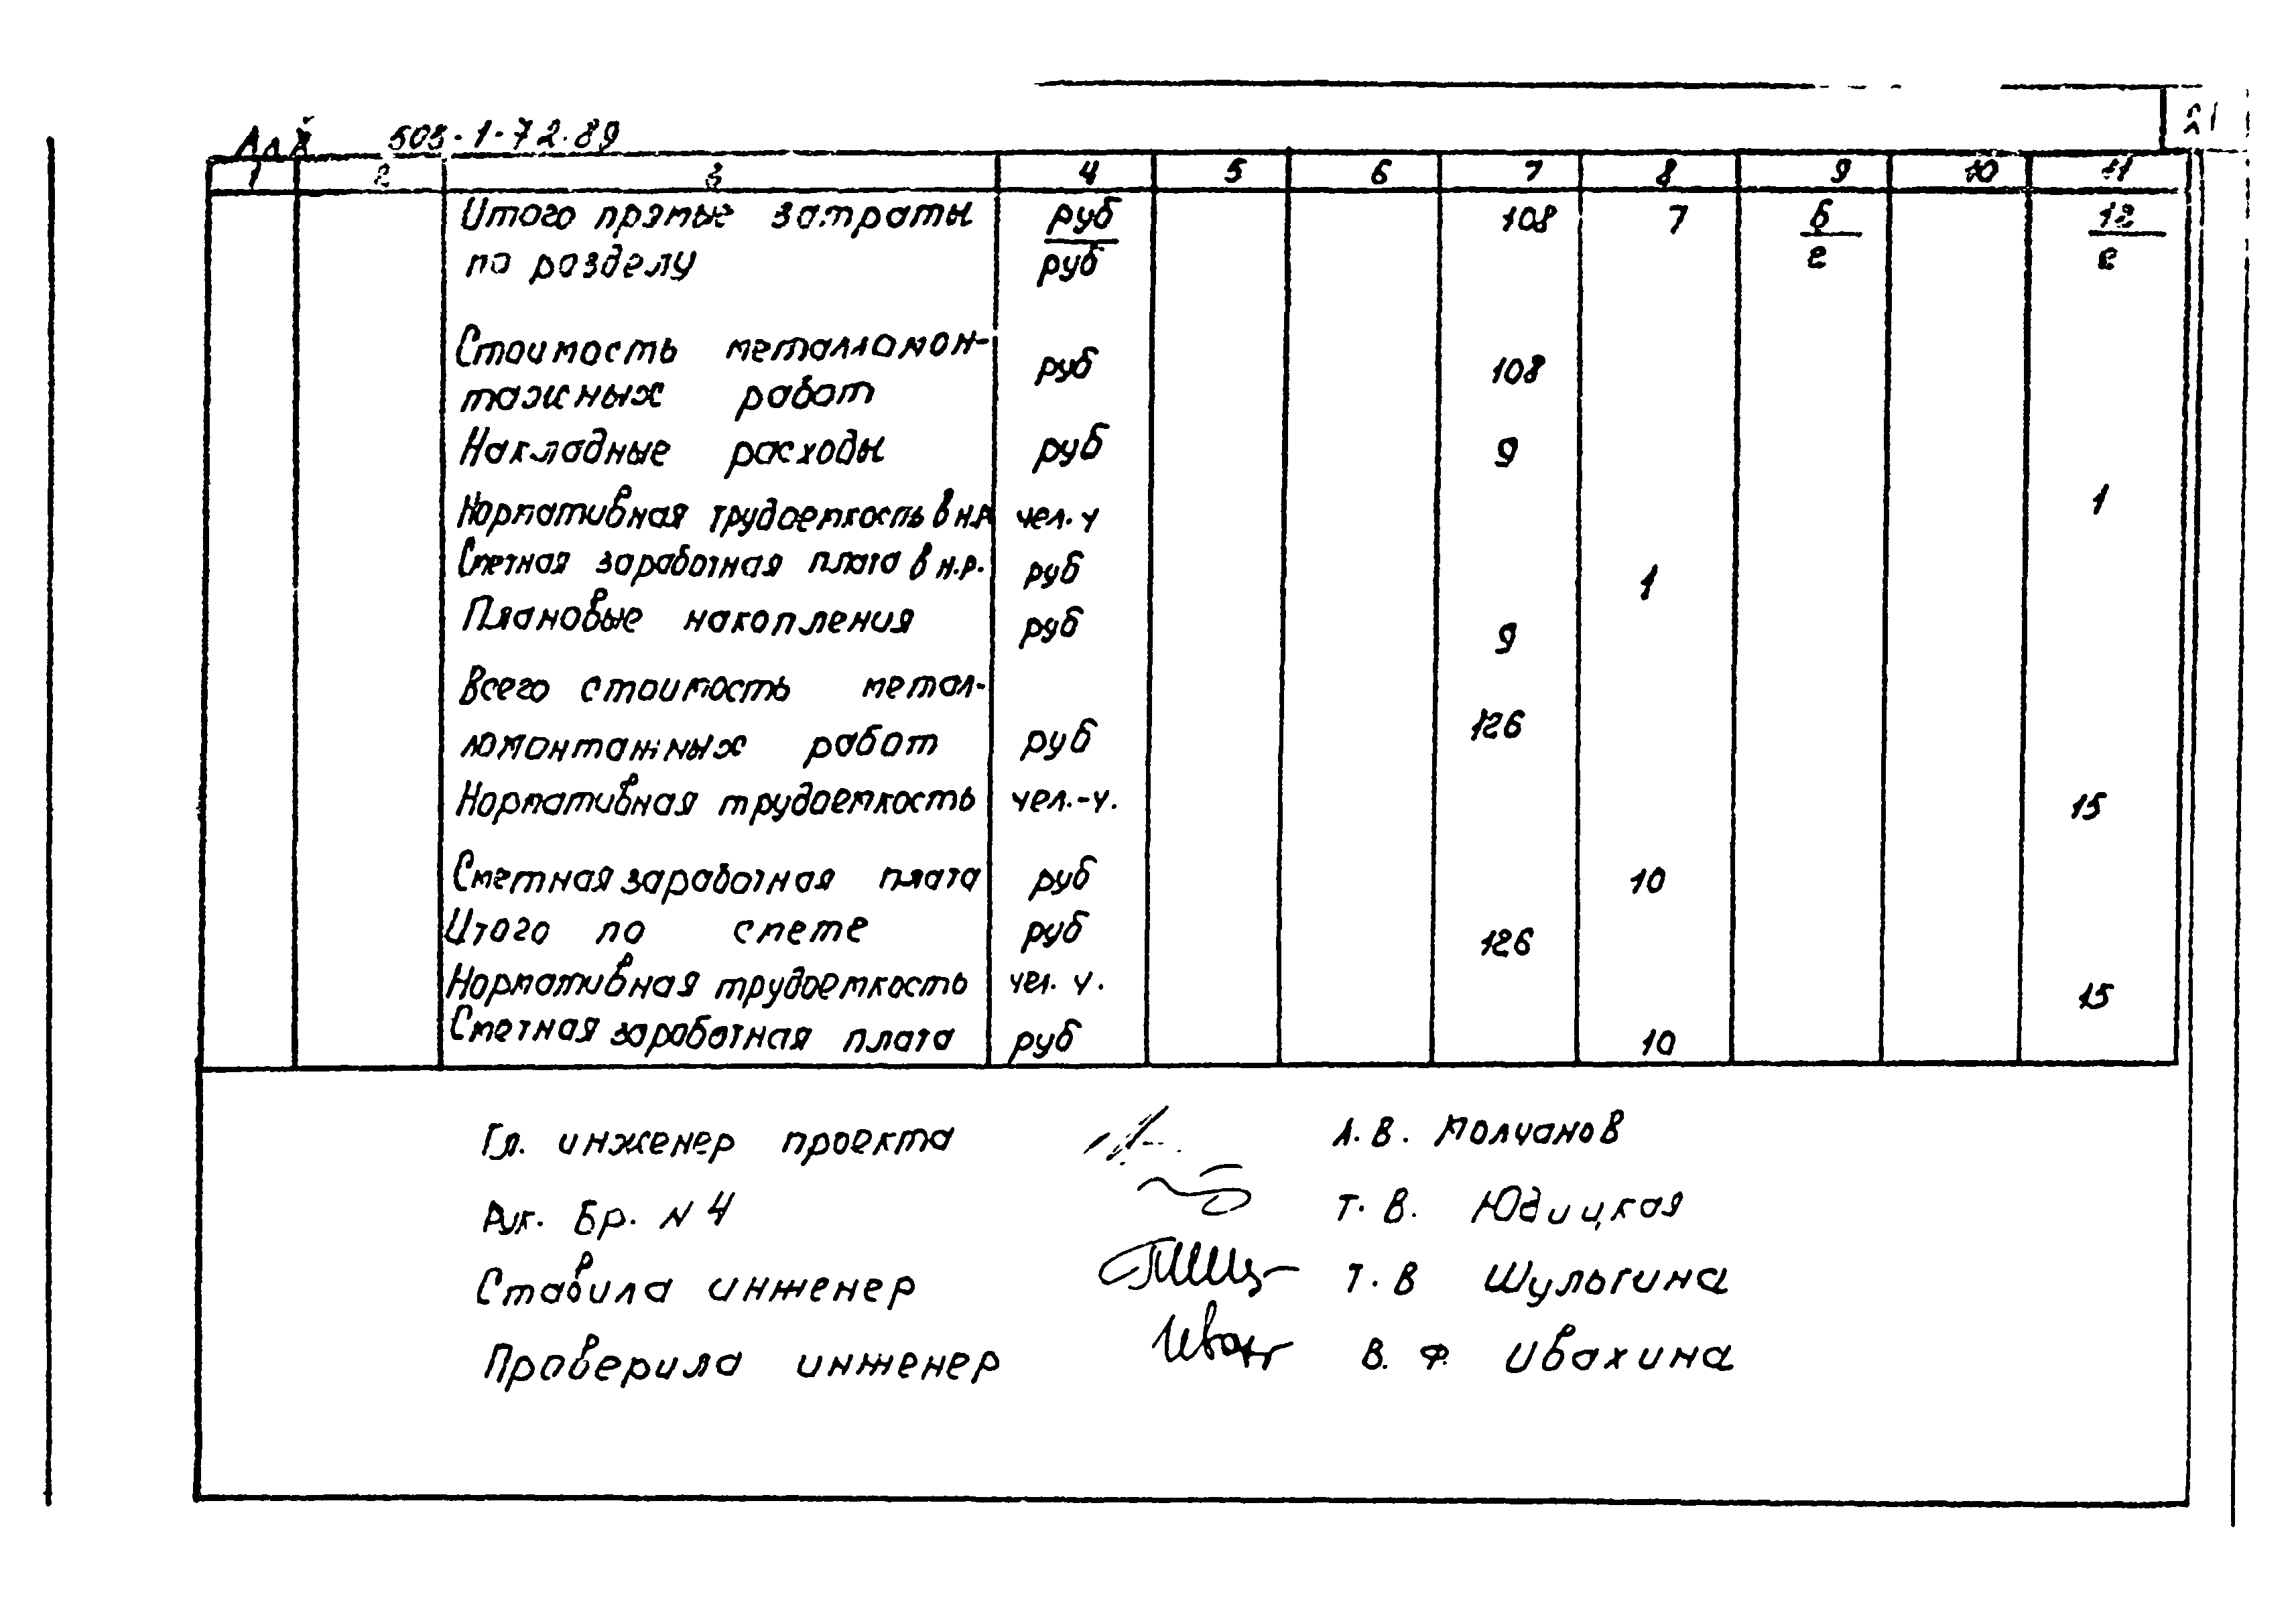 503-1-72.89
1 2 3 4 5 6 7 8 9 10 11
Итого прямые затраты руб 108 7 6 12
по разделу руб 2 2
Стоимость металломон-
руб 108
тажных работ
Накладные расходы руб 9
Нормативная трудоемкость в н.р. чел.ч 1
Сметная заработная плата в н.р. руб 1
Плановые накопления руб 9
Всего стоимость метал-
ломонтажных работ руб 126
Нормативная трудоемкость чел.-ч. 15
Сметная заработная плата руб 10
Итого по смете руб 126
Нормативная трудоемкость чел. ч. 15
Сметная заработная плата руб 10
Гл. инженер проекта А.В. Молчанов
Рук. бр. N 4 Т.В. Юдицкая
Ставила инженер Т.В Шульгина
Проверила инженер В.Ф. Ивахина